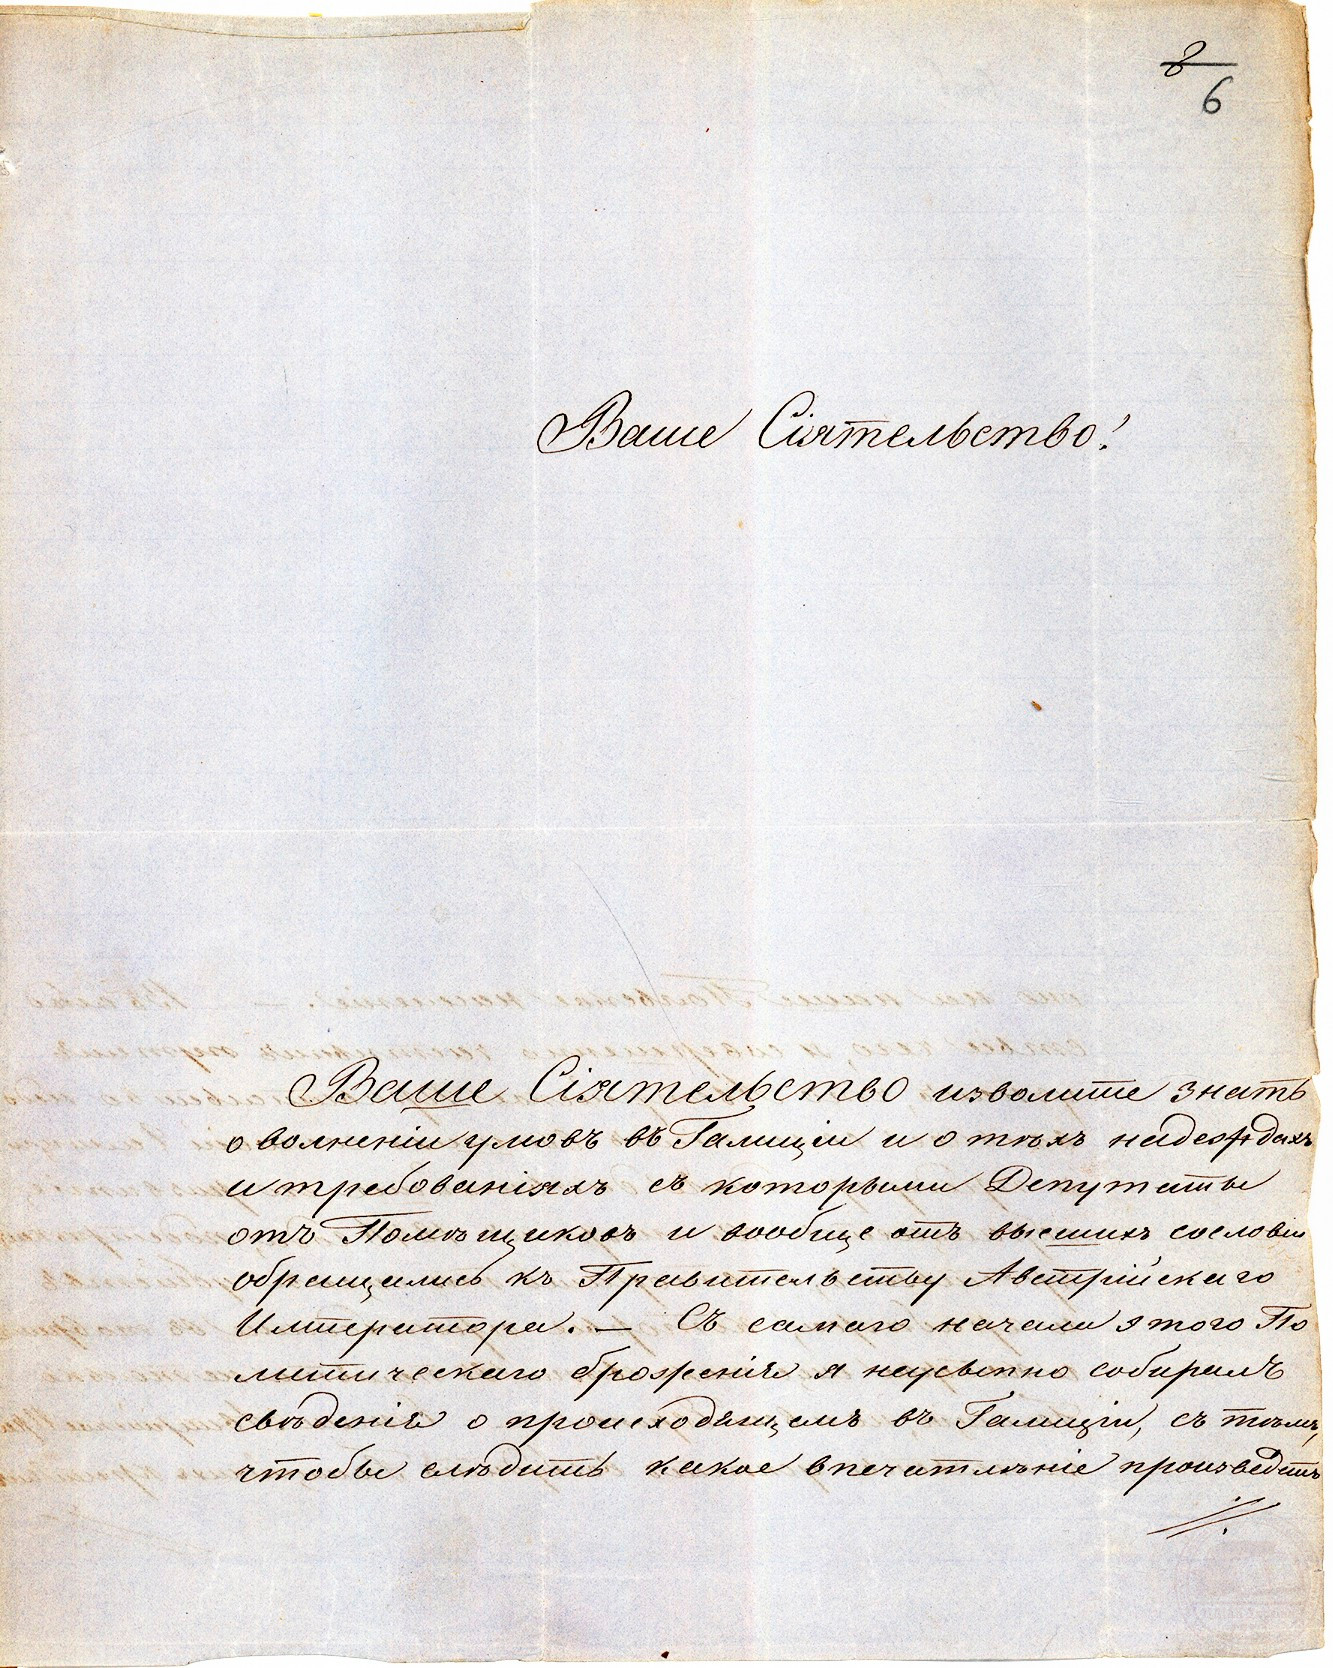 8
6
Ваше Сіятельство!
Ваше Сіятельство изволите знать
о волненіи умовъ въ Галиціи и о тѣхъ надеждахъ
и требованіяхъ съ которыми Депутаты
отъ Помѣщиковъ и вообще отъ высшихъ сословій
обращались къ Правительству Австрійскаго
Императора. — Съ самаго начала этого По
литическаго броженія я неусыпно собиралъ
свѣденія о происходящемъ въ Галиціи, съ тѣмъ,
чтобы слѣдить какое впечатлѣніе произведетъ